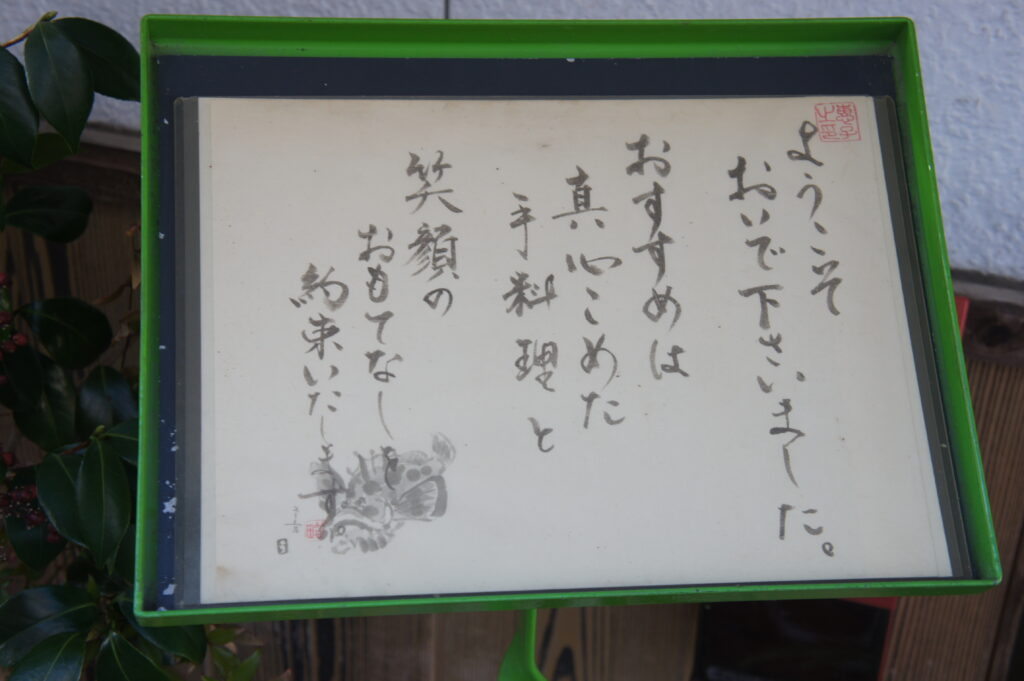 ようこそ
おいで下さいました。
おすすめは
真心こめた
手料理と
笑顔の
おもてなしを
約束いたします。